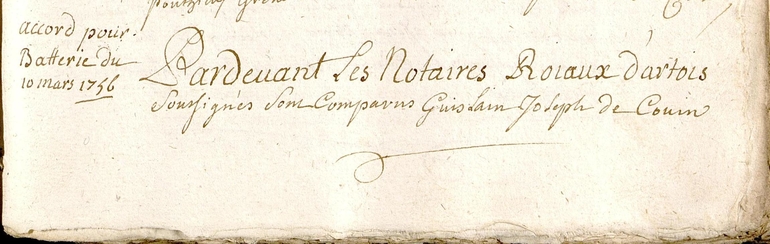 accord pour
Batterie du
10 mars 1756
Pardevant Les Notaires Roiaux d'artois
Soussignés Sont Comparus Guislain Joseph de Couin